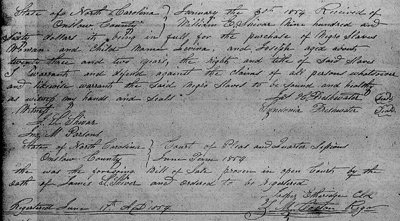 State of North Carolina } January the 30th 1854 Received of
Onslow County } William E. Shivar Nine hundred and
Sixty dollars it being in full, for the purchase of Negro Slaves
Woman and Child Mama Lovina, and Joseph aged about
twenty three and two years, the right and title of Said Slaves
I warrants and defend against the claims of all persons whatsoever
and likewise warrant the Said Negro Slaves to be Sound and healthy
as witness my hands and Seals
Witness } Freshwater Seal
Freshwater Seal
Persons
State of North Carolina } Court of Pleas and Quarter Sessions
Onslow County } June Term 1854
This was the foregoing Bill of Sale proven in open Court by the
oath of James Shivar and ordered to be registered
Jasper Etheridge Clk
Registered June 17th AD 1854 Regr